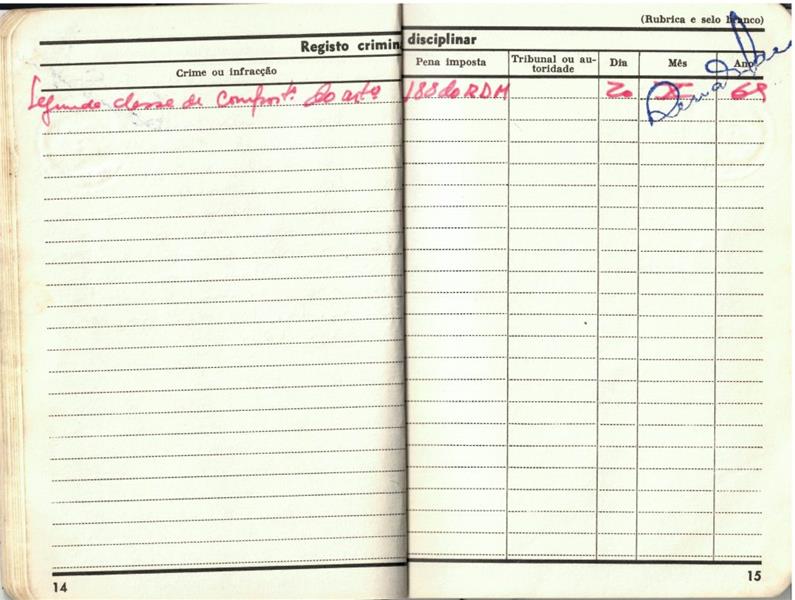 (Rubrica e selo branco)
Registo crimin disciplinar
Crime ou infracção
Pena imposta
Tribunal ou au-
toridade
Dia
Mês
Ano
Segunda classe de comport.º do artº 188 do RDM 20 69
14
15